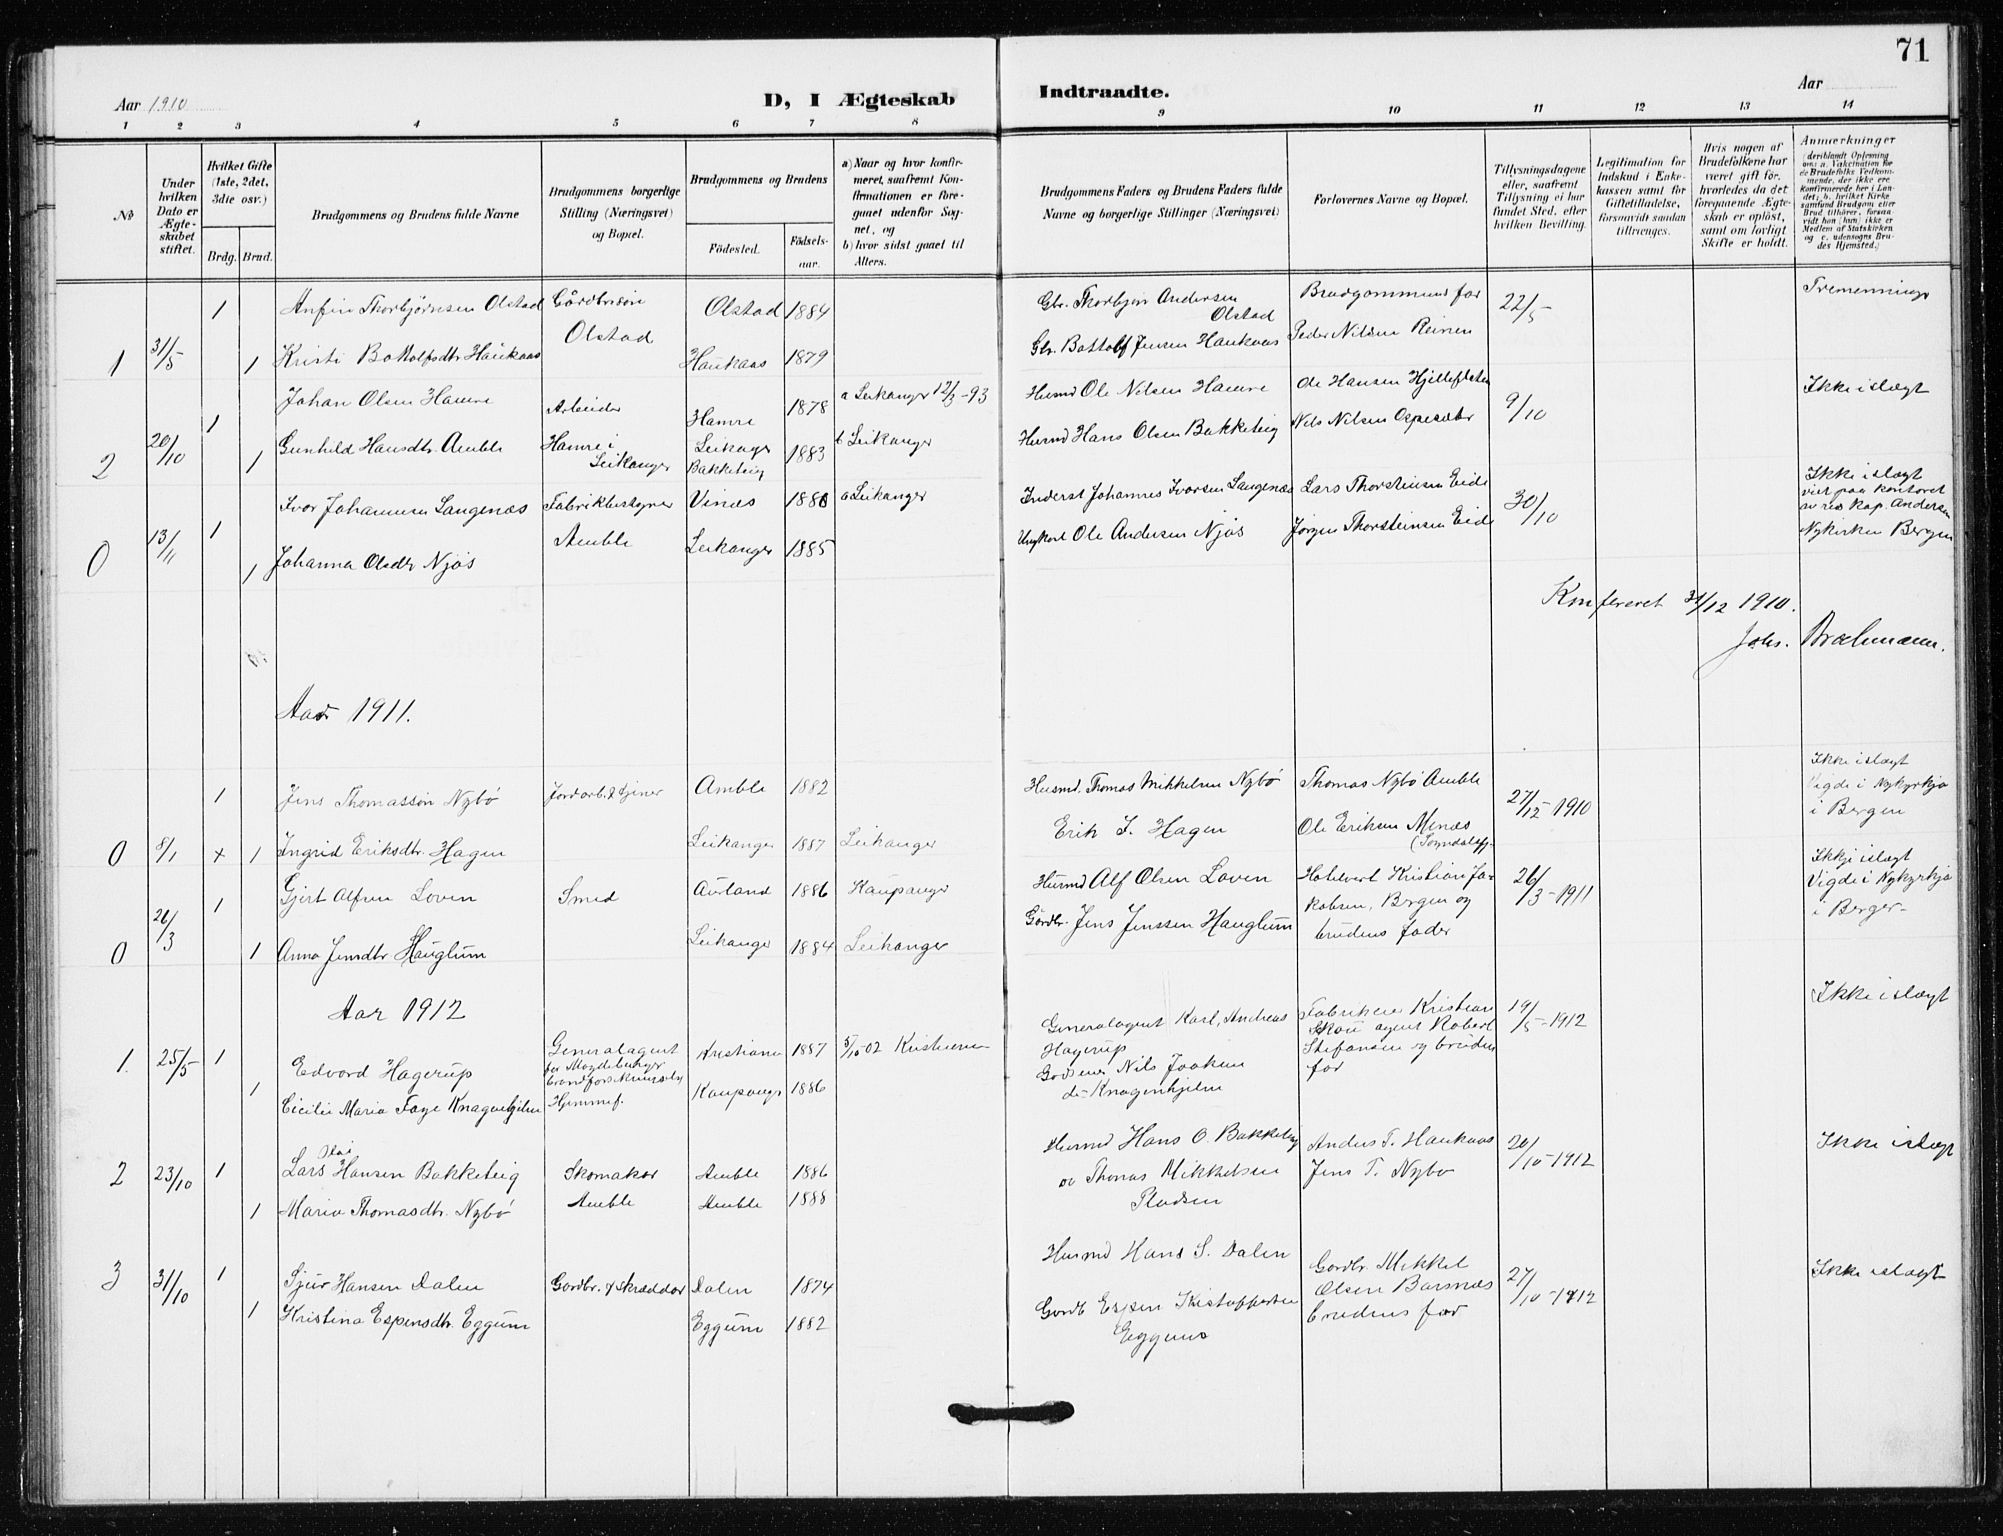 71
Aar 1910
D, I Ægteskab Indtraadte.
Aar
1 2 3 4 5 6 7 8 9 10 11 12 13 14
No
Under hvilken Dato er Ægteskabet stiftet.
Hvilket Gifte (1ste, 2det, 3die osv.)
Brdg. Brud.
Brudgommens og Brudens fulde Navne
Brudgommens borgerlige Stilling (Næringsvei) og Bopæl.
Brudgommens og Brudens
Födested.
Födselsaar.
a) Naar og hvor konfirmeret, saafremt Konfirmationen er foregaaet udenfor Sognet, og
b) hvor sidst gaaet til Alters.
Brudgommens Faders og Brudens Faders fulde Navne og borgerlige Stillinger (Næringsvei)
Forlovernes Navne og Bopæl.
Tillysningsdagene eller, saafremt Tillysning ei har fundet Sted, efter hvilken Bevilling.
Legitimation for Indskud i Enkekassen samt for Giftetilladelse, forsaavidt saadan tiltrænges.
Hvis nogen af Brudefolkene har været gift för, hvorledes da det foregaaende Ægteskab er oplöst, samt om lovligt Skifte er holdt.
Anmærkninger
1 31/5 1 Anfin Thorbjørnsen Olstad Gårdbr.søn Olstad 1884 Gbr. Thorbjørn Andersen Olstad Brudgommens far 22/5 Tremenninge
Olstad
1 Kristi Bottolfsdtr. Haukaas Haukaas 1879 Gbr. Bottolf Jensen Haukaas Peder Nilsen Reinen
2 20/10 1 Johan Olsen Hamre Arbeider Hamre 1878 a Leikanger 12/3-93 Husmd Ole Nilsen Hamre Ole Hansen Hjelleflaten 9/10 Ikke i slegt
1 Gunhild Hansdtr. Amble Hamre i Leikanger Leikanger Bakketeig 1883 b Leikanger Husmd Hans Olsen Bakketeig Nils Nilsen Ospesæter
0 13/11 1 Ivor Johannesen Langenæs Fabrikbestyrer Vinæs 1880 a Leikanger Inderst Johannes Ivorsen Langenæs Lars Thorsteinsen Eide 30/10 Ikke i slegt
viet paa kontoret
av res. kap. Andersen
Nykirken Bergen
1 Johanna Olsdtr Njøs Amble Leikanger 1885 Ungkarl Ole Andersen Njøs Jørgen Thorsteinsen Eide
Konfereret 31/12 1910.
Johs.
Aar 1911.
0 8/1 1 Jens Thomasson Nybø Amble 1882 Husmd. Thomas Mikkelsen Nybø Thomas Nybø Amble 27/12-1910 Ikke i slegt
Vigde i Nykyrkja
i Bergen
+ 1 Ingrid Eriksdtr. Hagen Leikanger 1887 Leikanger Erik J. Hagen Ole Eriksen
0 26/3 1 Gjert Alfsen Loven Smed Aurland 1886 Kaupanger Husmd Alf Olsen Loven Kristian Jakobsen, Bergen og 26/3-1911 Ikkje i slegt
Vigde i Nykyrkja
i Bergen
1 Anna Jensdtr Hauglum Leikanger 1884 Leikanger Gårdbr. Jens Jenssen Hauglum brudens fader
Aar 1912
1. 25/5 1 Edvard Hagerup Generalagent Kristiania 1887 5/10-02 Kristiania Generalagent Karl Andreas Hagerup Kristian agent Robert Stefansen og brudens far 19/5-1912 Ikke i slegt
1 Cicilie Maria Faye Knagenhjelm Hjemmef. Kaupanger 1886 Nils Joakim de Knagenhjelm
2 23/10 1 Lars Olai Hansen Bakketeig Skomaker Amble 1886 Husmd Hans O. Bakketeig Anders T. Haukaas 20/10-1912 Ikke i slegt
1 Maria Thomasdtr. Nybø Amble Amble 1888 Thomas Mikkelsen Jens T. Nybø
3 31/10 1 Sjur Hansen Dalen Gardbr. & Skræddar Dalen 1874 Husmd Hans S. Dalen Gardbr. Mikkel Olsen Barsnæs 27/10-1912 Ikke i slegt
1 Kristina Espensdtr. Eggum Eggum 1882 Gardb Espen Kristoffersen Eggum brudens far